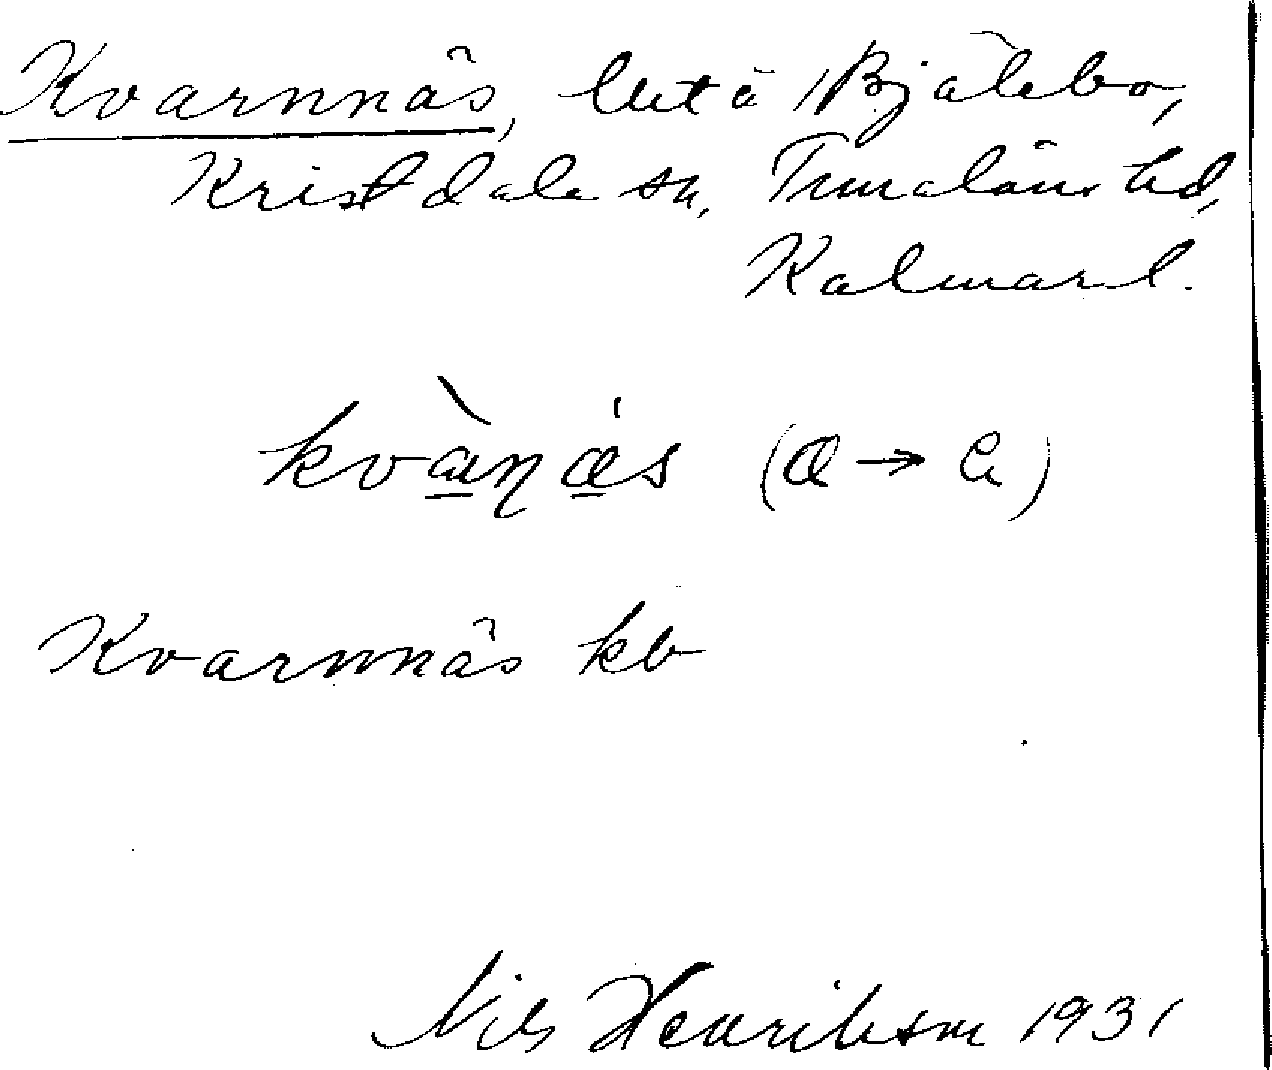 Kvarnnäs, lht å 1 Bjälebo,
Kristdala sn, Tunaläns hd,
Kalmar l.
kvànás (a → a)
Kvarnnäs kb
Nils Henrikson 1931